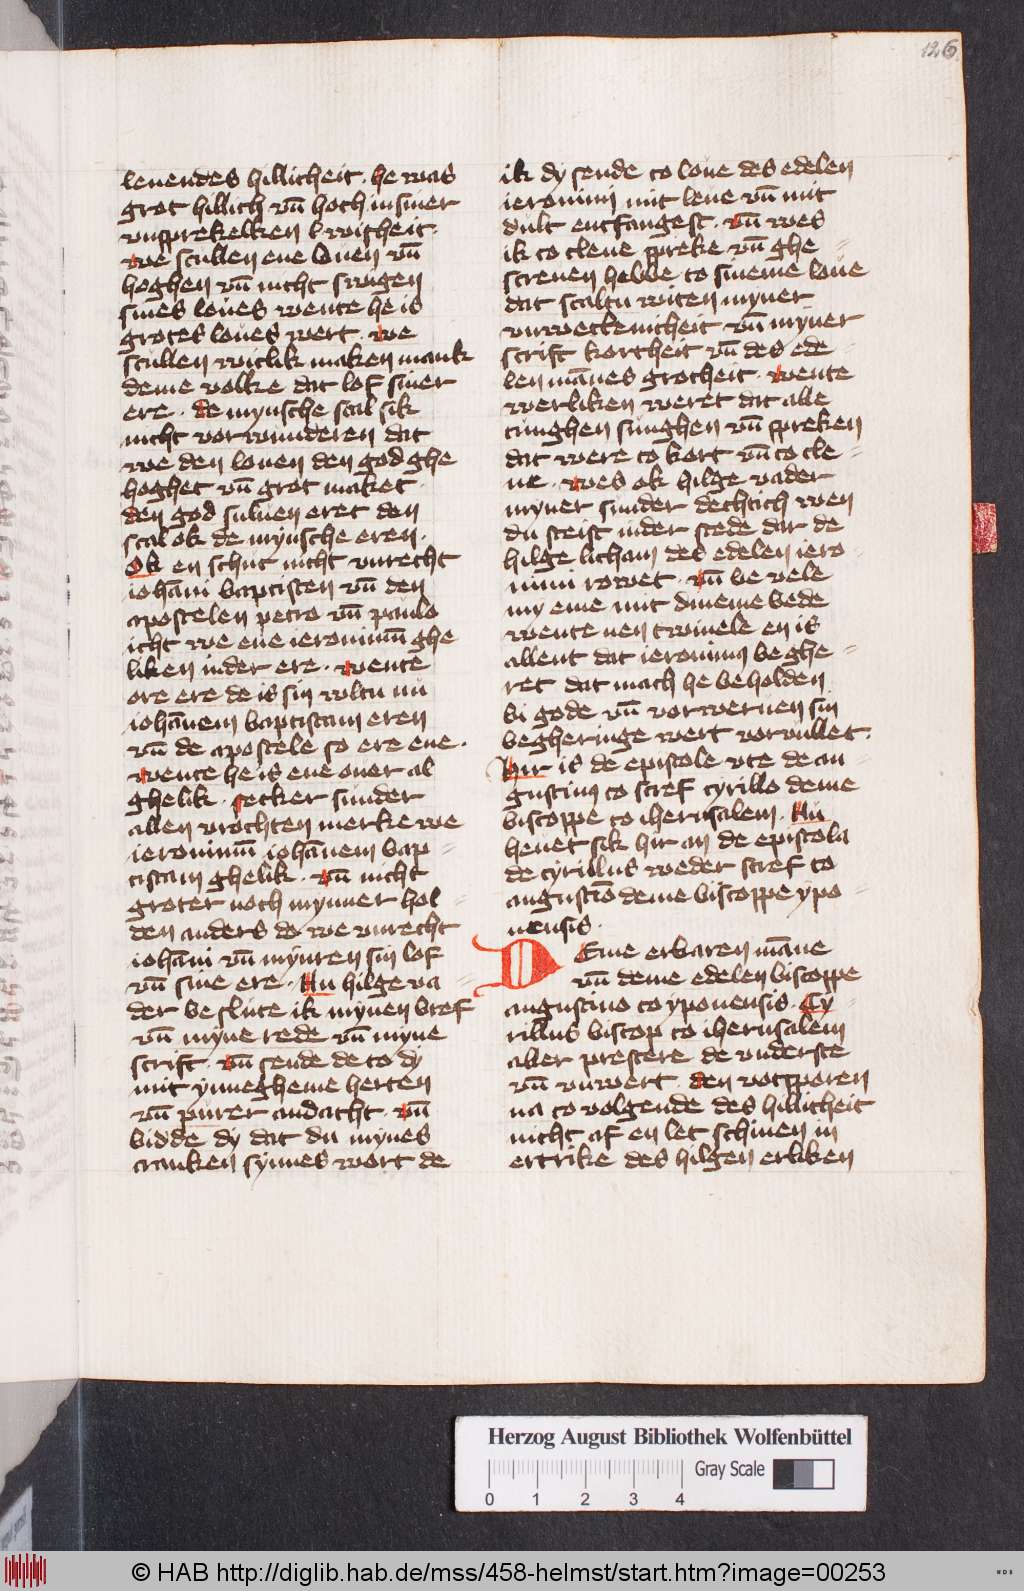 126
leuendes hillicheit. he was
grot hillich vn̄ hoch in siner
vnsprekelken l witheit.
we scullen ene louen vn̄
hoghen vn̄ nicht swigen
sines loues wente he is
grotes loues wert. we
scullen witlik maken mank
deme volke dat lof siner
ere. de mynsche scal sik
nicht vorwunderen dat
we den louen den god ghe
hoghet vn̄ grot maket.
den god suluen eret den
scal ok de mynsche eren.
Ok en schut nicht vnrecht
iohāni baptisten vn̄ den
apostelen petro vn̄ paulo
icht we ene ieronimū ghe
liken in der ere. wente
ore ere de is sin woltu nu
iohānem baptistam eren
vn̄ de apostele so ere ene.
wente he is ene ouer al
ghelik. secker sunder
allen vrochten merke we
ieronimū iohānem bap
tistam ghelik. vn̄ nicht
groter noch mynner hol
den anders do we vnrecht
iohāni vn̄ mynren sin lof
vn̄ sine ere. Nu hilge va
der be slute ik mynen bref
vn̄ myne rede vn̄ myne
scrift. vn̄ sende de to dy
mit ynnegheme herten
vn̄ purer andacht. vn̄
bidde dy dat du mynes
cranken synnes wort de
ik dy sende to loue des edelen
ieronimi mit leue vn̄ mit
dult entfangest. vn̄ wes
ik to clene spreke vn̄ ghe
screuen hebbe to sineme loue
dat scaltu witen myner
vnwetlenicheit vn̄ myner
scrift kortheit vn̄ des ede
len mānes grotheit. wente
werliken weret dat alle
tunghen sunghen vn̄ spreken
dat were to kort vn̄ to cle
ne. wes ok hilge vader
myner sunder dechtich wen
du steist in der stede dar de
hilge licham des edelen iero
nimi rowet. vn̄ be vele
my eme mit dineme bede
wente nen twiuele en is
allent dat ieronimus beghe
ret dat mach he beholden
bi gode vn̄ vorweruen sin
begheringe wert vorvullet.
Hir is de epistole vte de au
gustinus to scref cyrillo deme
biscoppe to iherusalem. Nu
heuet sik hir an de epistola
de cyrillus weder scref to
augustīo deme biscoppe ypo
nensis.
DEme erbaren māne
vn̄ deme edelen biscoppe
augustino to yponensis. Cy
rillus biscop to iherusalem
aller prestere de vnderste
vn̄ vnwert. den votsporen
na to volgende des hillicheit
nicht af en let schinen in
ertrike des hilgen erliken
Herzog August Bibliothek Wolfenbüttel
Gray Scale
0 1 2 3 4
© HAB http://diglib.hab.de/mss/458-helmst/start.htm?image=00253